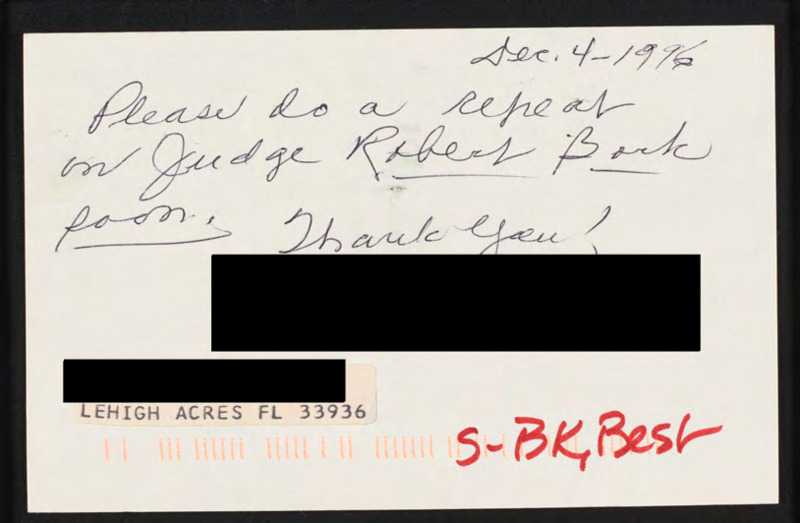 Dec. 4-1996
Please do a repeat
on Judge Robert Bork
soon. Thank You!
LEHIGH ACRES FL 33936
S-BK, Best